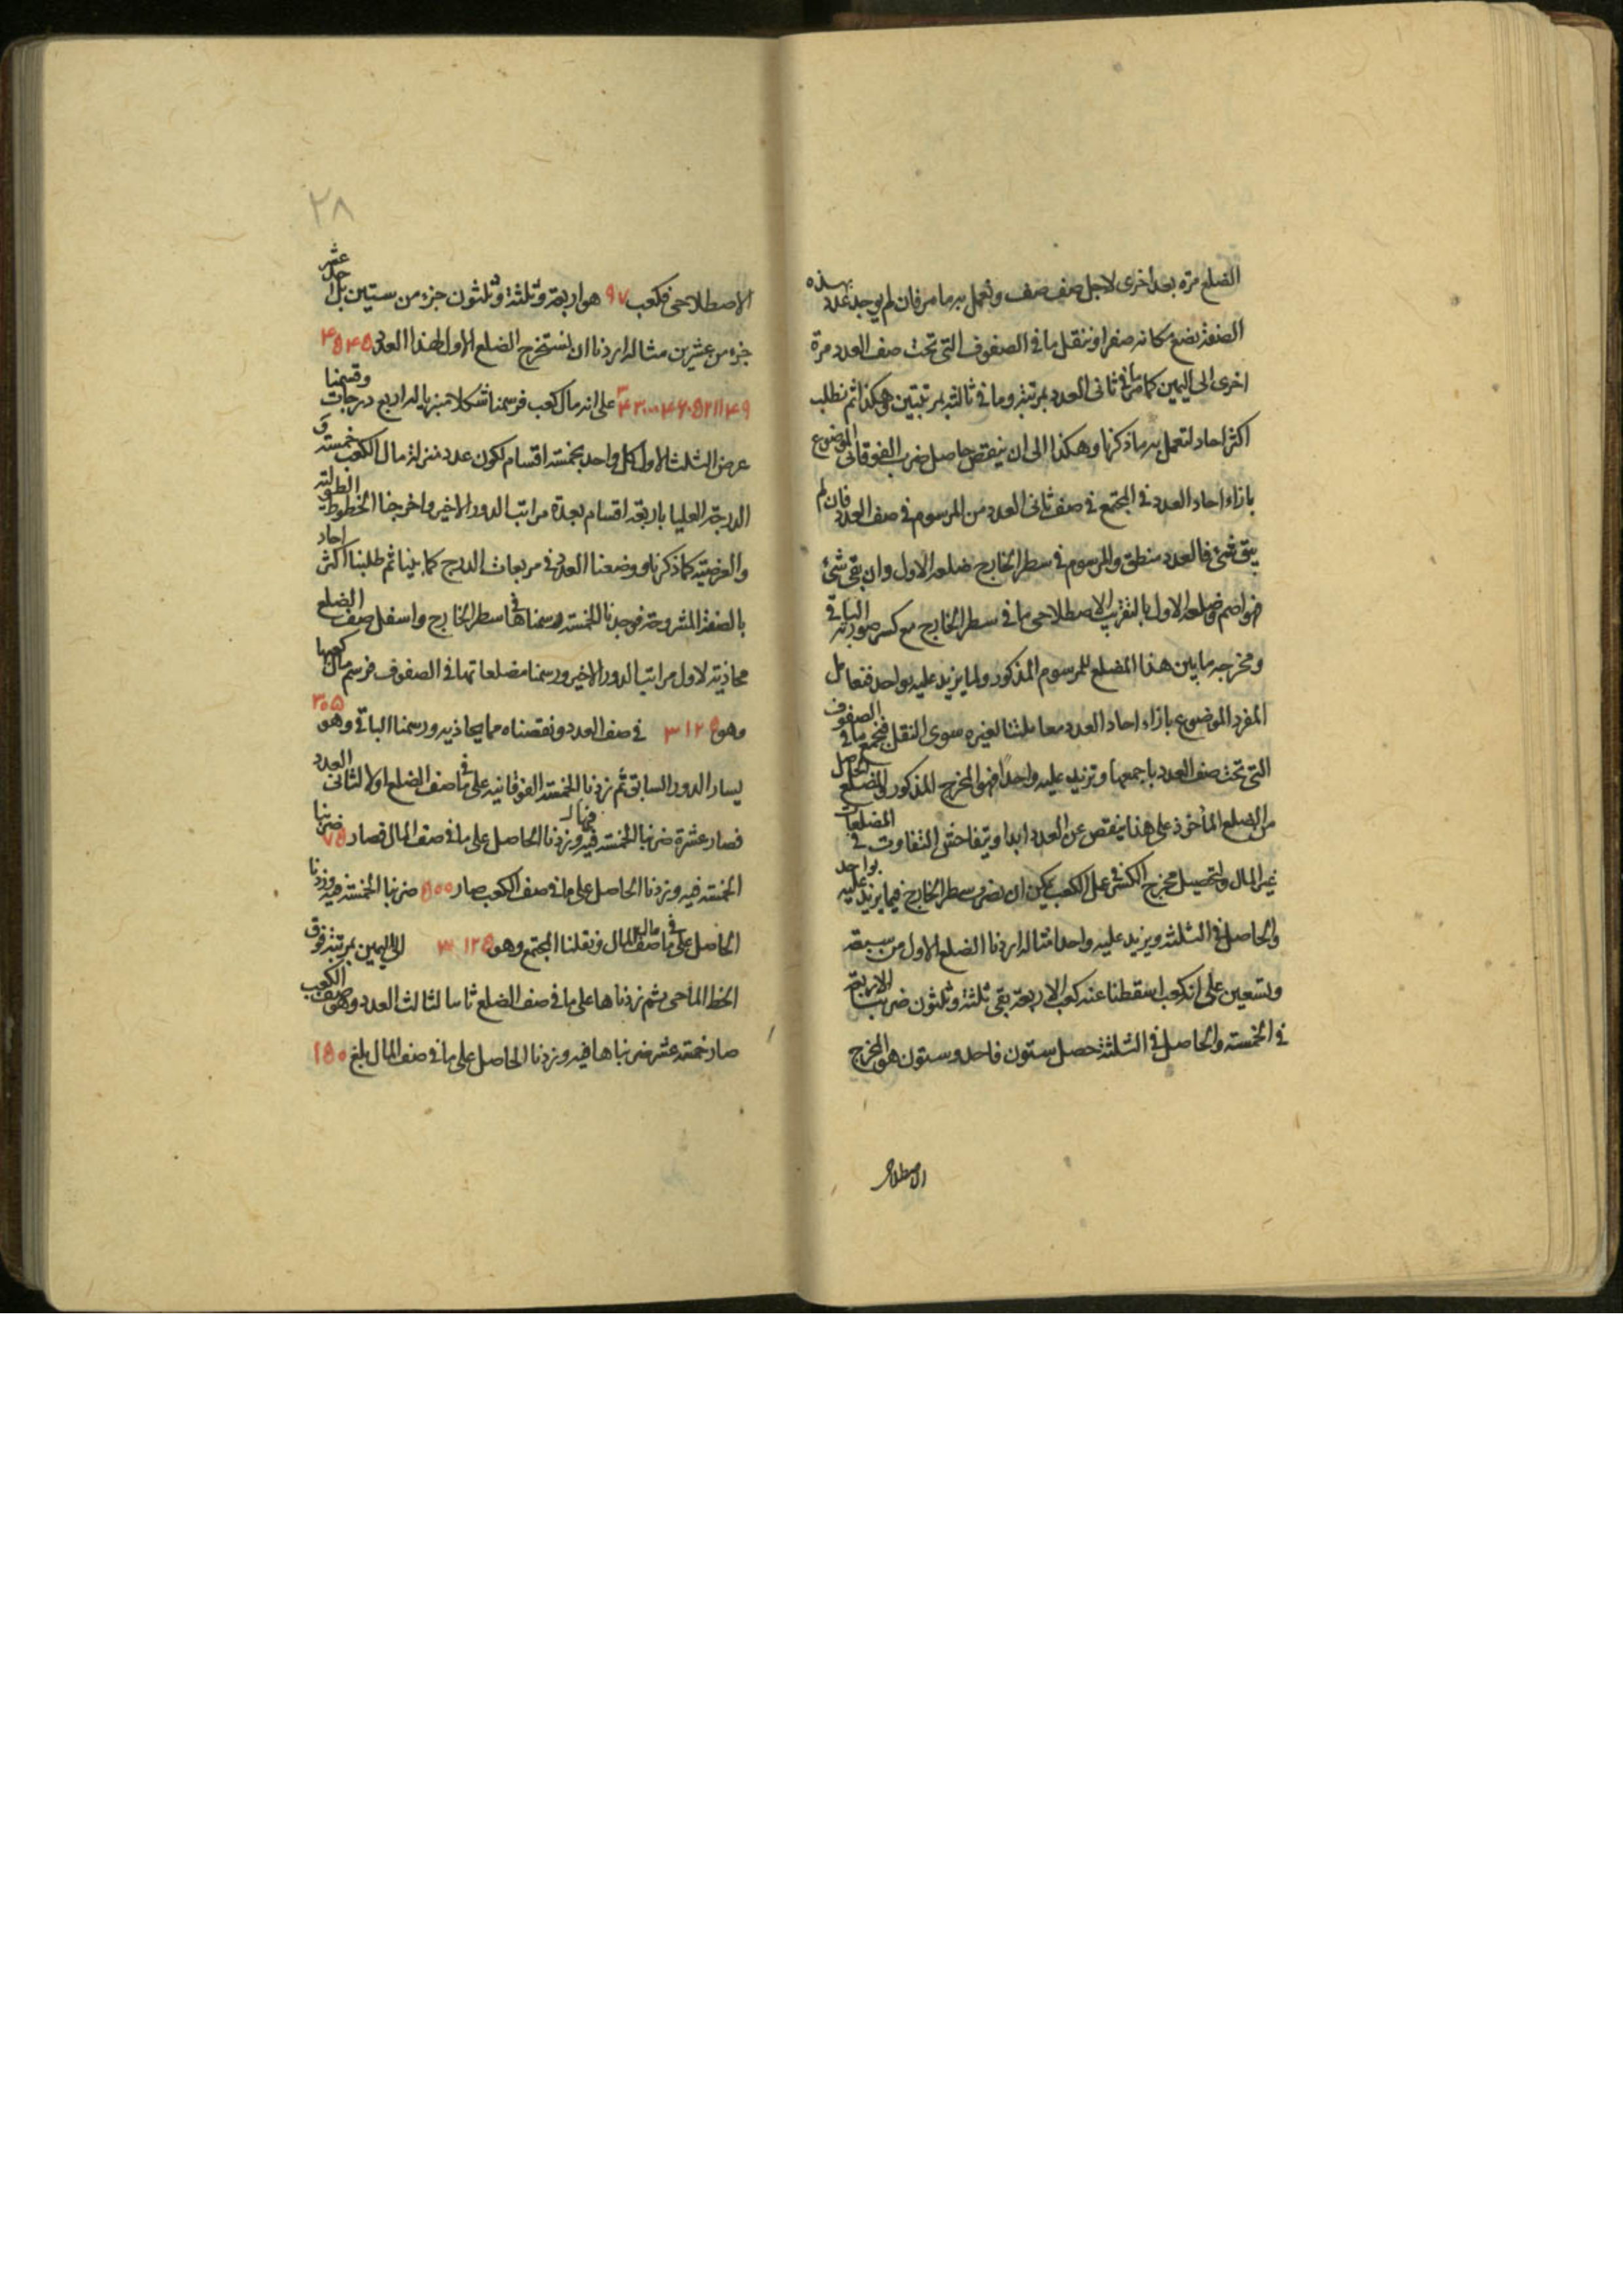 الضلع مرة بعد أخرى لاجل صف صف ونعمل به ما مر فان لم يوجد عدد بهذه
الصفة نضع مكانه صفرا وننقل ما في الصفوف التي تحت صف العدد مرة
اخرى الى اليمين كما مر ما في ثاني العدد بمرتبة وما في ثالثه بمرتبتين وهكذا ثم نطلب
اكثر احاد لنعمل به ما ذكرنا وهكذا الى ان ينقص حاصل ضرب الفوقاني الموضوع
بازاء احاد العدد في المجتمع في صف ثاني العدد من المرسوم في صف العدد فان لم
يبق شئ فالعدد منطق والمرسوم في سطر الخارج ضلعه الاول وان بقي شئ
فهو اصم وضلعه الاول بالتقريب الاصطلاحي ما في سطر الخارج مع كسر صورته الباقي
ومخرجه ما بين هذا المضلع للمرسوم المذكور ولما يزيد عليه بواحد فنعامل
المفرد الموضوع بازاء احاد العدد معاملتنا لغيره سوى النقل فنجمع ما في الصفوف
التي تحت صف العدد باجمعها ونزيد عليه واحدا فهو المخرج المذكور والمضلع الحاصل
من الضلع المأخوذ على هذا ينقص عن العدد ابدا ويتفاحش التفاوت في المضلعات
غير المال ولتحصيل مخرج الكسر في عمل الكعب يمكن ان يضرب سطر الخارج فيما يزيد عليه بواحد
والحاصل في الثلثة ويزيد عليه واحدا مثاله اردنا الضلع الاول من سبعة
وتسعين على انه كعب اسقطنا عنه كعب الاربعة بقي ثلثة وثلثون ضربنا الاربعة
في الخمسة والحاصل في الثلثة حصل ستون فاحد وستون هو المخرج
الاصطلاحي
٢٨
الاصطلاحي فكعب ٩٧ هو اربعة وثلثة وثلثون جزء من ستين بل احد عشر
جزء من عشرين مثاله اردنا ان نستخرج الضلع الاول لهذا العدد
على انه مال كعب فرسمنا شكلا اربع درجات وقسمنا
عرض الثلث الاول كل واحد بخمسة اقسام لكون عدد منزلة مال الكعب خمسة و
الدرجة العليا باربعة اقسام بعدة مراتب الدور الاخير واخرجنا الخطوط الطولية
والعرضية كما ذكرنا ووضعنا العدد في مربعات الدرج كما بينا ثم طلبنا اكثر احاد
بالصفة المشروحة فوجدنا الخمسة ورسمناها في سطر الخارج واسفل صف الضلع
محاذية لاول مراتب الدور الاخير ورسمنا مضلعاتها في الصفوف فرسم مال كعبها
وهو ٣١٢٥ في صف العدد ونقصناه مما يحاذيه ورسمنا الباقي وهو ٣٠٥
يسار الدور السابق ثم زدنا الخمسة الفوقانية على ما في صف الضلع اولا لثاني العدد
فصار عشرة ضربنا الخمسة فيه وزدنا الحاصل على ما في صف المال فصار ٧٥ ضربنا
الخمسة فيه وزدنا الحاصل على ما في صف الكعب صار ٥٠٠ ضربنا الخمسة فيه وزدنا
الحاصل على ما في صف مال المال ونقلنا المجتمع وهو ٣١٢٥ الى اليمين بمرتبة فوق
الخط الماحي ثم زدناها على ما في صف الضلع ثانيا لثالث العدد وهو صف الكعب
صار خمسة عشر ضربناها فيه وزدنا الحاصل على ما في صف المال بلغ ١٥٠